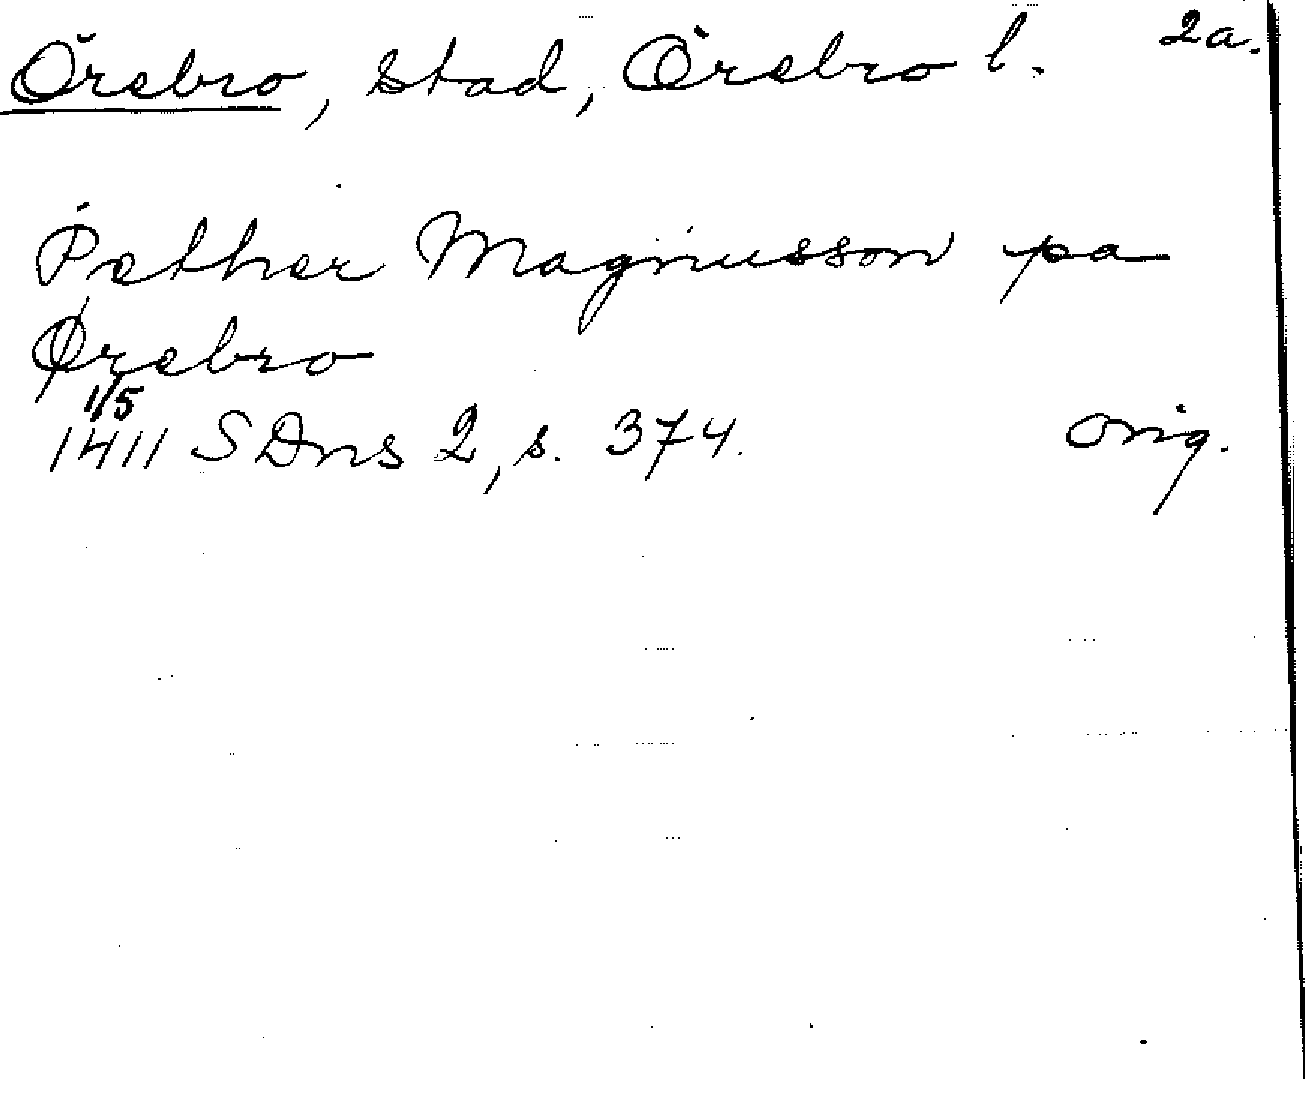 Örebro, stad, Örebro l. 2a.
Pether Magnusson pa
Ørebro
1/5
1411 SDns 2, s. 374. Orig.